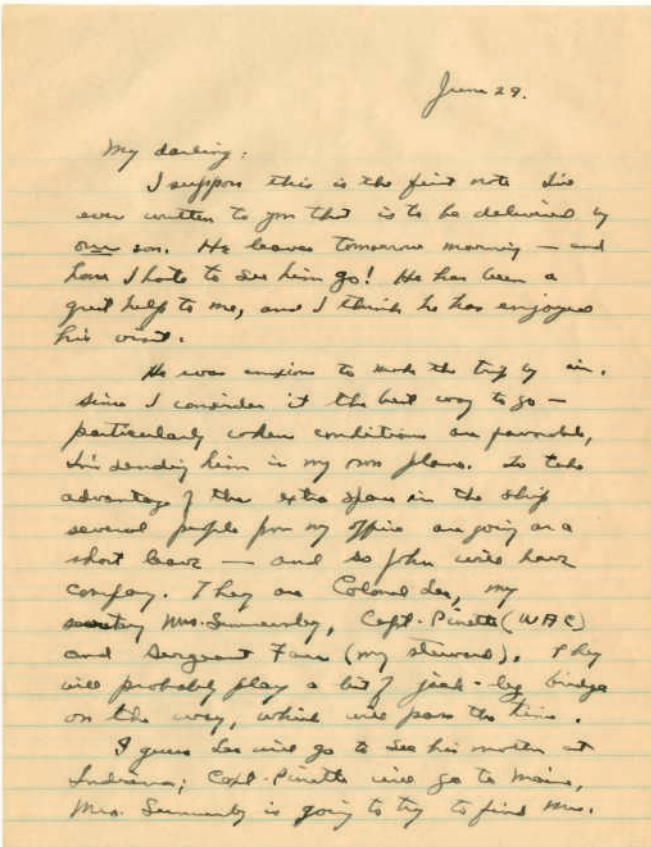 June 29.
My darling:
I suppose this is the first note I've
ever written to you that is to be delivered by
our son. He leaves tomorrow morning — and
how I hate to see him go! He has been a
great help to me, and I think he has enjoyed
his visit.
He was anxious to make the trip by air.
Since I consider it the best way to go —
particularly when conditions are favorable,
I'm sending him in my own plane. To take
advantage of the extra space in the ship
several people from my office are going on a
short leave — and so John will have
company. They are Colonel Lee, my
secretary Mrs. Summersby, Capt. Pinette (WAC)
and Sergeant Farr (my steward). They
will probably play a bit of jack-leg bridge
on the way, which will pass the time.
I guess Lee will go to see his mother at
Indiana; Capt. Pinette will go to Maine,
Mrs. Summersby is going to try to find Mrs.